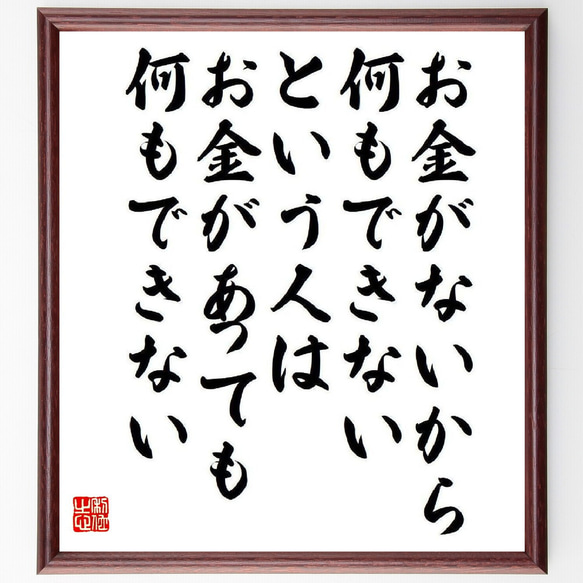 お金がないから
何もできない
という人は
お金があっても
何もできない